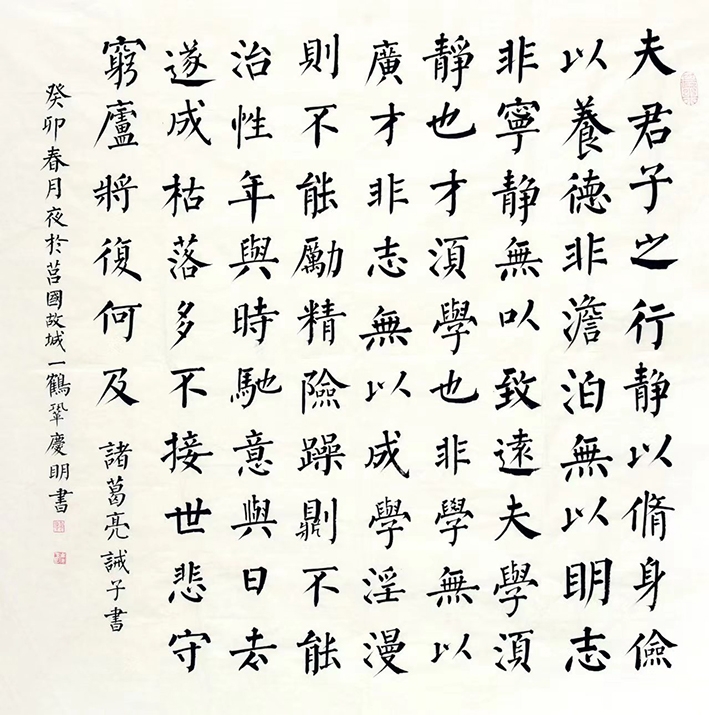 夫君子之行静以脩身儉
以養德非澹泊無以明志
非寧静無以致遠夫學須
静也才須學也非學無以
廣才非志無以成學淫漫
則不能勵精險躁則不能
治性年與時馳意與日去
遂成枯落多不接世悲守
窮廬將復何及 諸葛亮誡子書
癸卯春月夜於莒國故城一鶴鞏慶明書